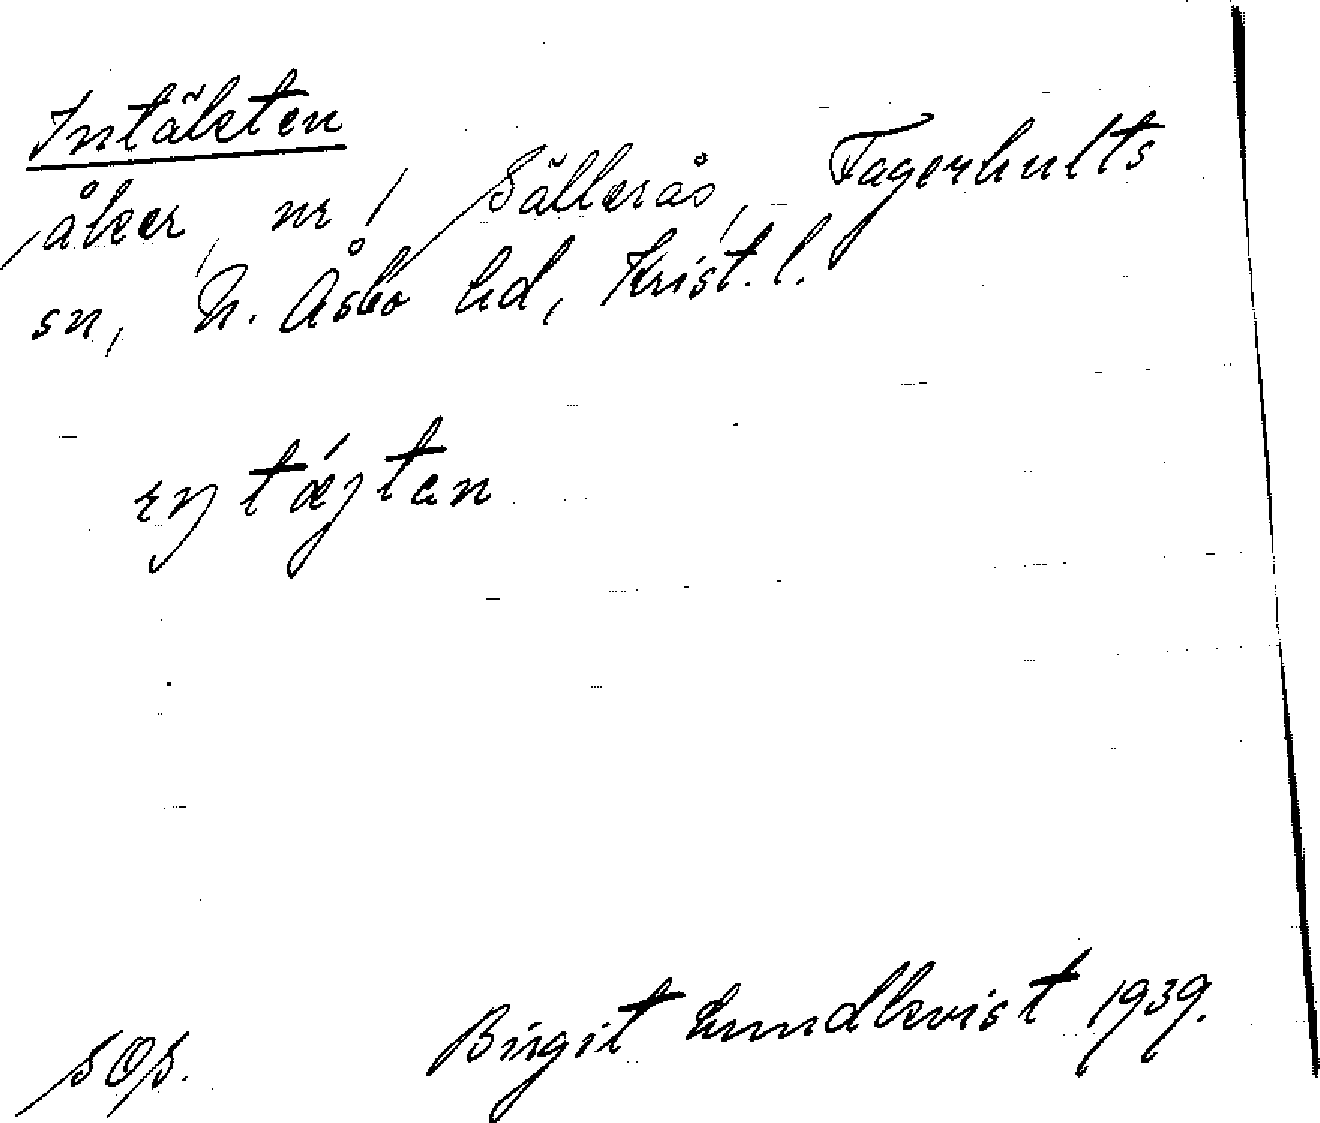 Intäkten
åker, nr 1 Sällerås, Fagerhults
sn, N. Åsbo hd, Krist. l.
ɛŋtǽjtan
SOS. Birgit Lundkvist 1939.